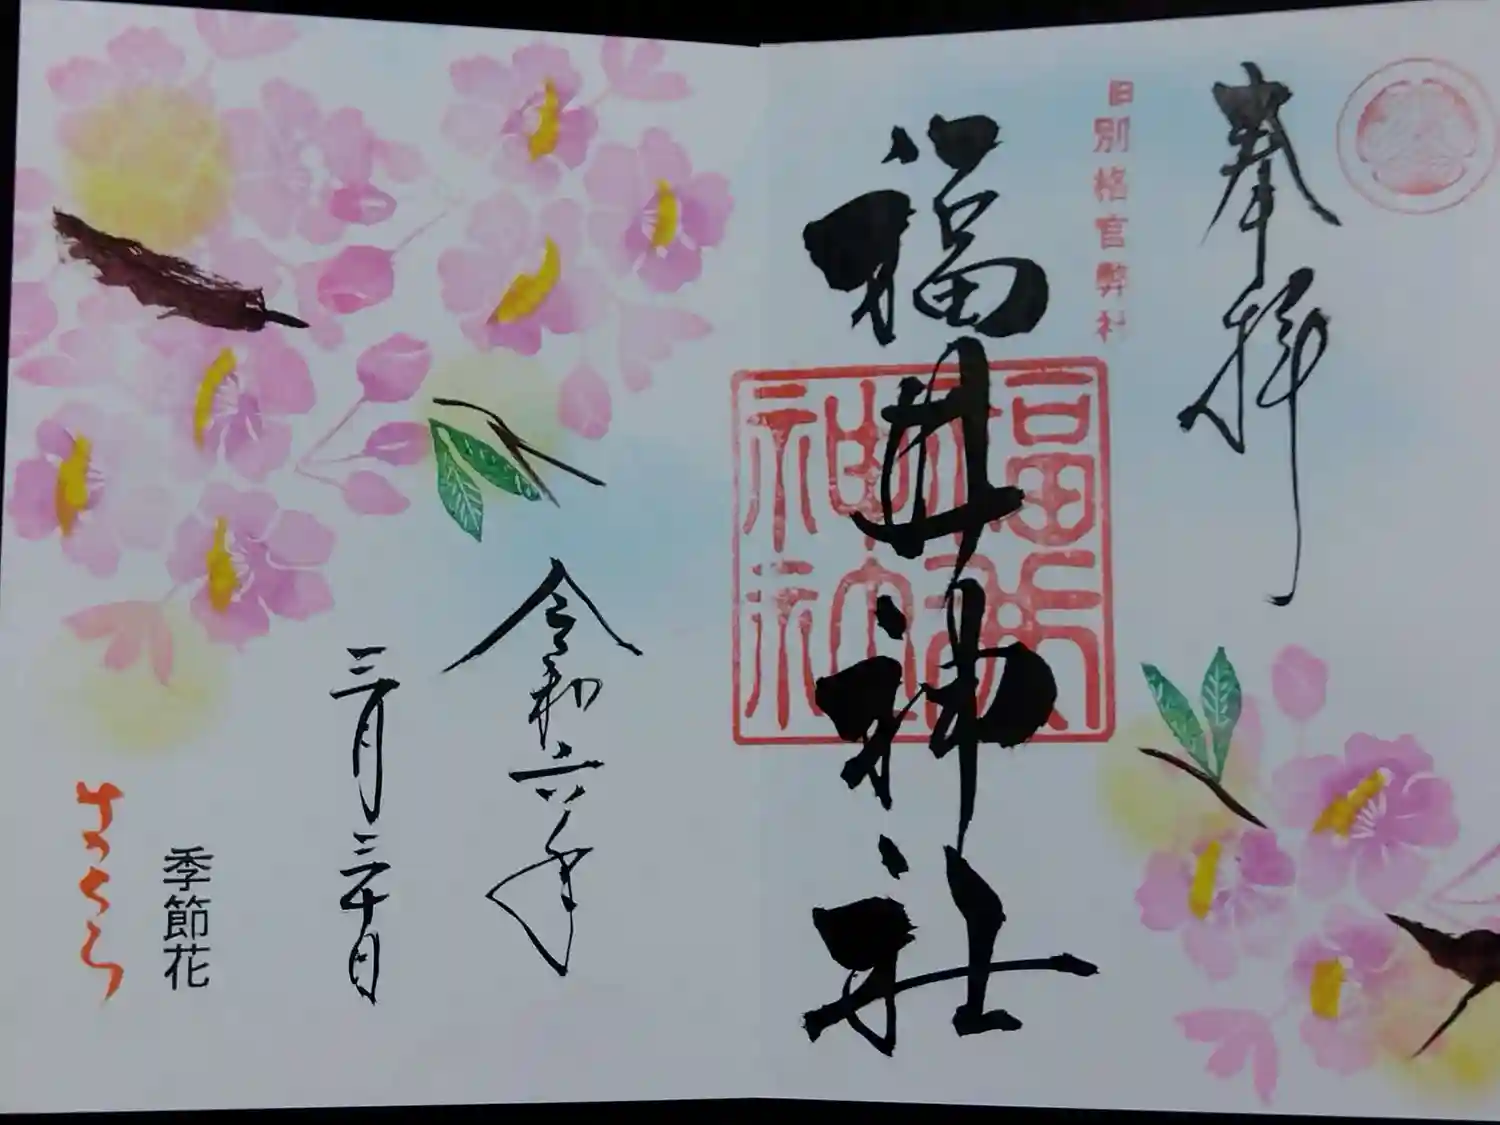 奉拝
旧別格官幣社
福井神社
令和六年
三月三十日
季節花
さくら